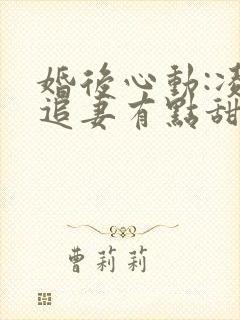 婚後心動:凌
追妻有點甜
曹莉莉